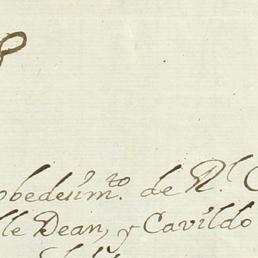 obedesim.to de R.l C
lle Dean, y Cavildo